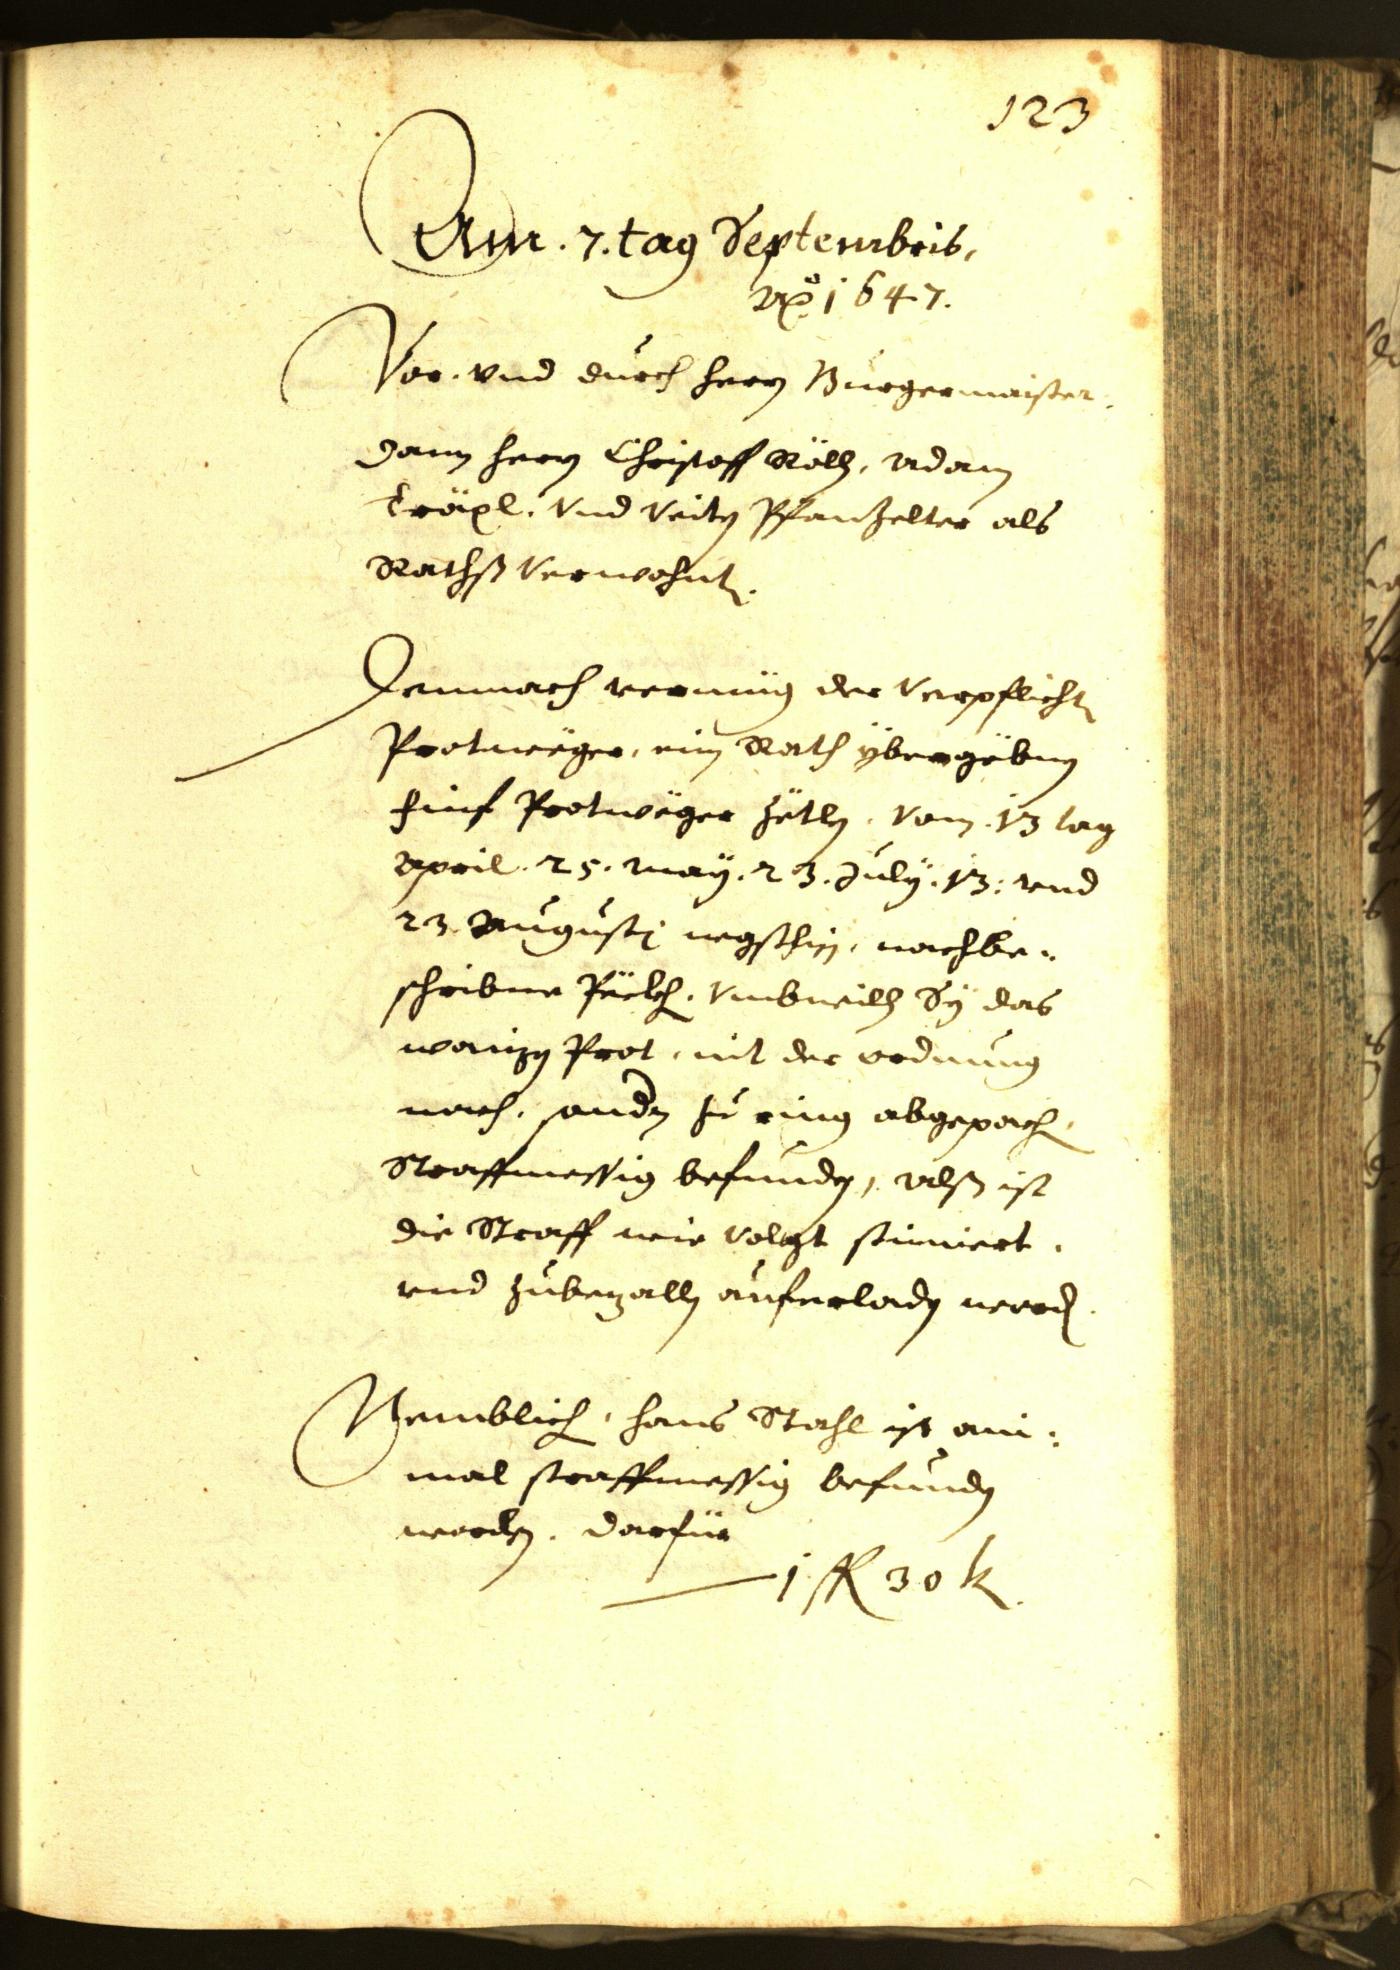 123
Am . 7. tag Septembris,
Aō 1647.
Vor. vnd durch herrn Burgermaister,
dann herrn Christoff Röll, Adam
Träxl. vnd Veitn Pfanzelter als
Rathß Verwohnte.
Demnach vermüg der Verpflichtn
Protweger, ein Rath ybergebnen
finf Protweger zetln. Vom . 13 tag
April . 25. May . 23. July . 13: vnd
23. Augustj negsthin, nachbe:
schribne Peckh. vmbweilln Sy das
waizen Prot, nit der ordnung
nach, sondern zu ring abgepachen,
Straffmessig befunden, Alß ist
die Straff wie volgt
vnd zubezalln auferladen wordn.
Nemblich, hans Stahl ist ain:
mal straffmessig befunden
worden. Darfür
1 fl 30 k.